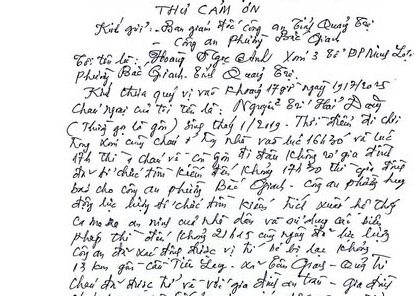 THƯ CẢM ƠN
Kính gửi: - Ban giám đốc công an Tỉnh Quảng Trị
- Công an Phường Bắc Gianh
Tôi tên là: Hoàng Ngọc Anh Xóm 3 Tổ DP
Phường Bắc Gianh. Tỉnh Quảng Trị.
Kính thưa quý vị vào khoảng 17 giờ ngày 19/7/2025
Cháu ngoại của tôi tên là: Nguyễn Trí Hải Đăng
(Thường gọi là gôn) Sinh tháy 1/2019. Thời điểm đi chơi
xóm cùng cháu ở nhà vào lúc 16h30 và lúc
17h thì cháu đi đâu không rõ gia đình
đã tổ chức tìm kiếm đến khoảng 17h30 thì gia đình
báo cho công an phường Bắc Gianh. Công an phường huy
động lực lượng tổ chức tìm kiếm trích xuất hệ thống
Camera an ninh của nhà dân và sử dụng các biện
pháp thì đến khoảng 21h45 cùng ngày đã lực lượng
công an đã xác định được vị trí bé bị lạc khoảng
13 km gần cầu xã - Quảng Trị
Cháu đã được trở về với gia đình an toàn - gia đình